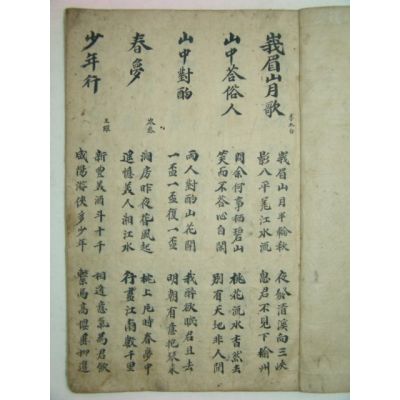 峩眉山月歌
李太白
峩眉山月半輪秋
影入平羌江水流
夜發清溪向三峽
思君不見下榆州
山中荅俗人
問余何事栖碧山
笑而不荅心自閑
桃花流水杳然去
別有天地非人間
山中對酌
兩人對酌山花開
一盃一盃復一盃
我醉欲眠君且去
明朝有意抱琴來
春夢
岑參
洞房昨夜春風起
遙憶美人湘江水
枕上片時春夢中
行盡江南數千里
少年行
王維
新豊美酒斗十千
咸陽游俠多少年
相逢意氣爲君飮
繫馬高樓垂柳邊